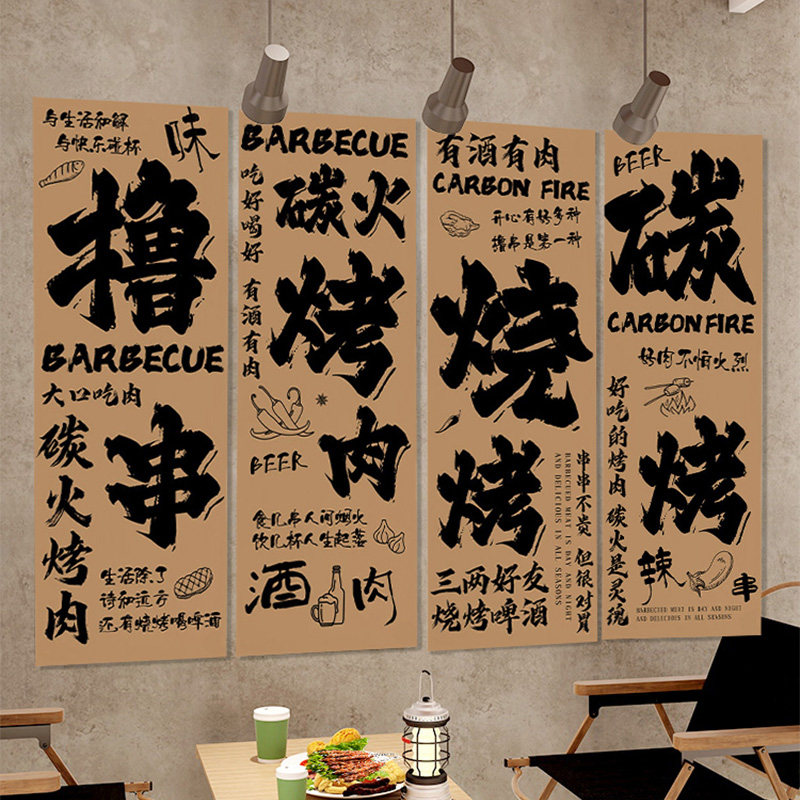 与生活和解
与快乐碰杯
味
撸
BARBECUE
大口吃肉
串
碳火烤肉
生活除了
诗和远方
还有烧烤喝啤酒
BARBECUE
吃好喝好
有酒有肉
碳火
烤
肉
BEER
食几串人间烟火
饮几杯人生起落
酒
肉
有酒有肉
CARBON FIRE
开心有好多种
撸串是第一种
烧
烤
BARBECUED MEAT IS DAY AND NIGHT
AND DELICIOUS IN ALL SEASONS
串串不贵 但很对胃
三两好友
烧烤啤酒
BEER
碳
CARBON FIRE
好肉不怕火烈
好吃的烤肉 碳火是灵魂
烤
辣
串
BARBECUED MEAT IS DAY AND NIGHT
AND DELICIOUS IN ALL SEASONS